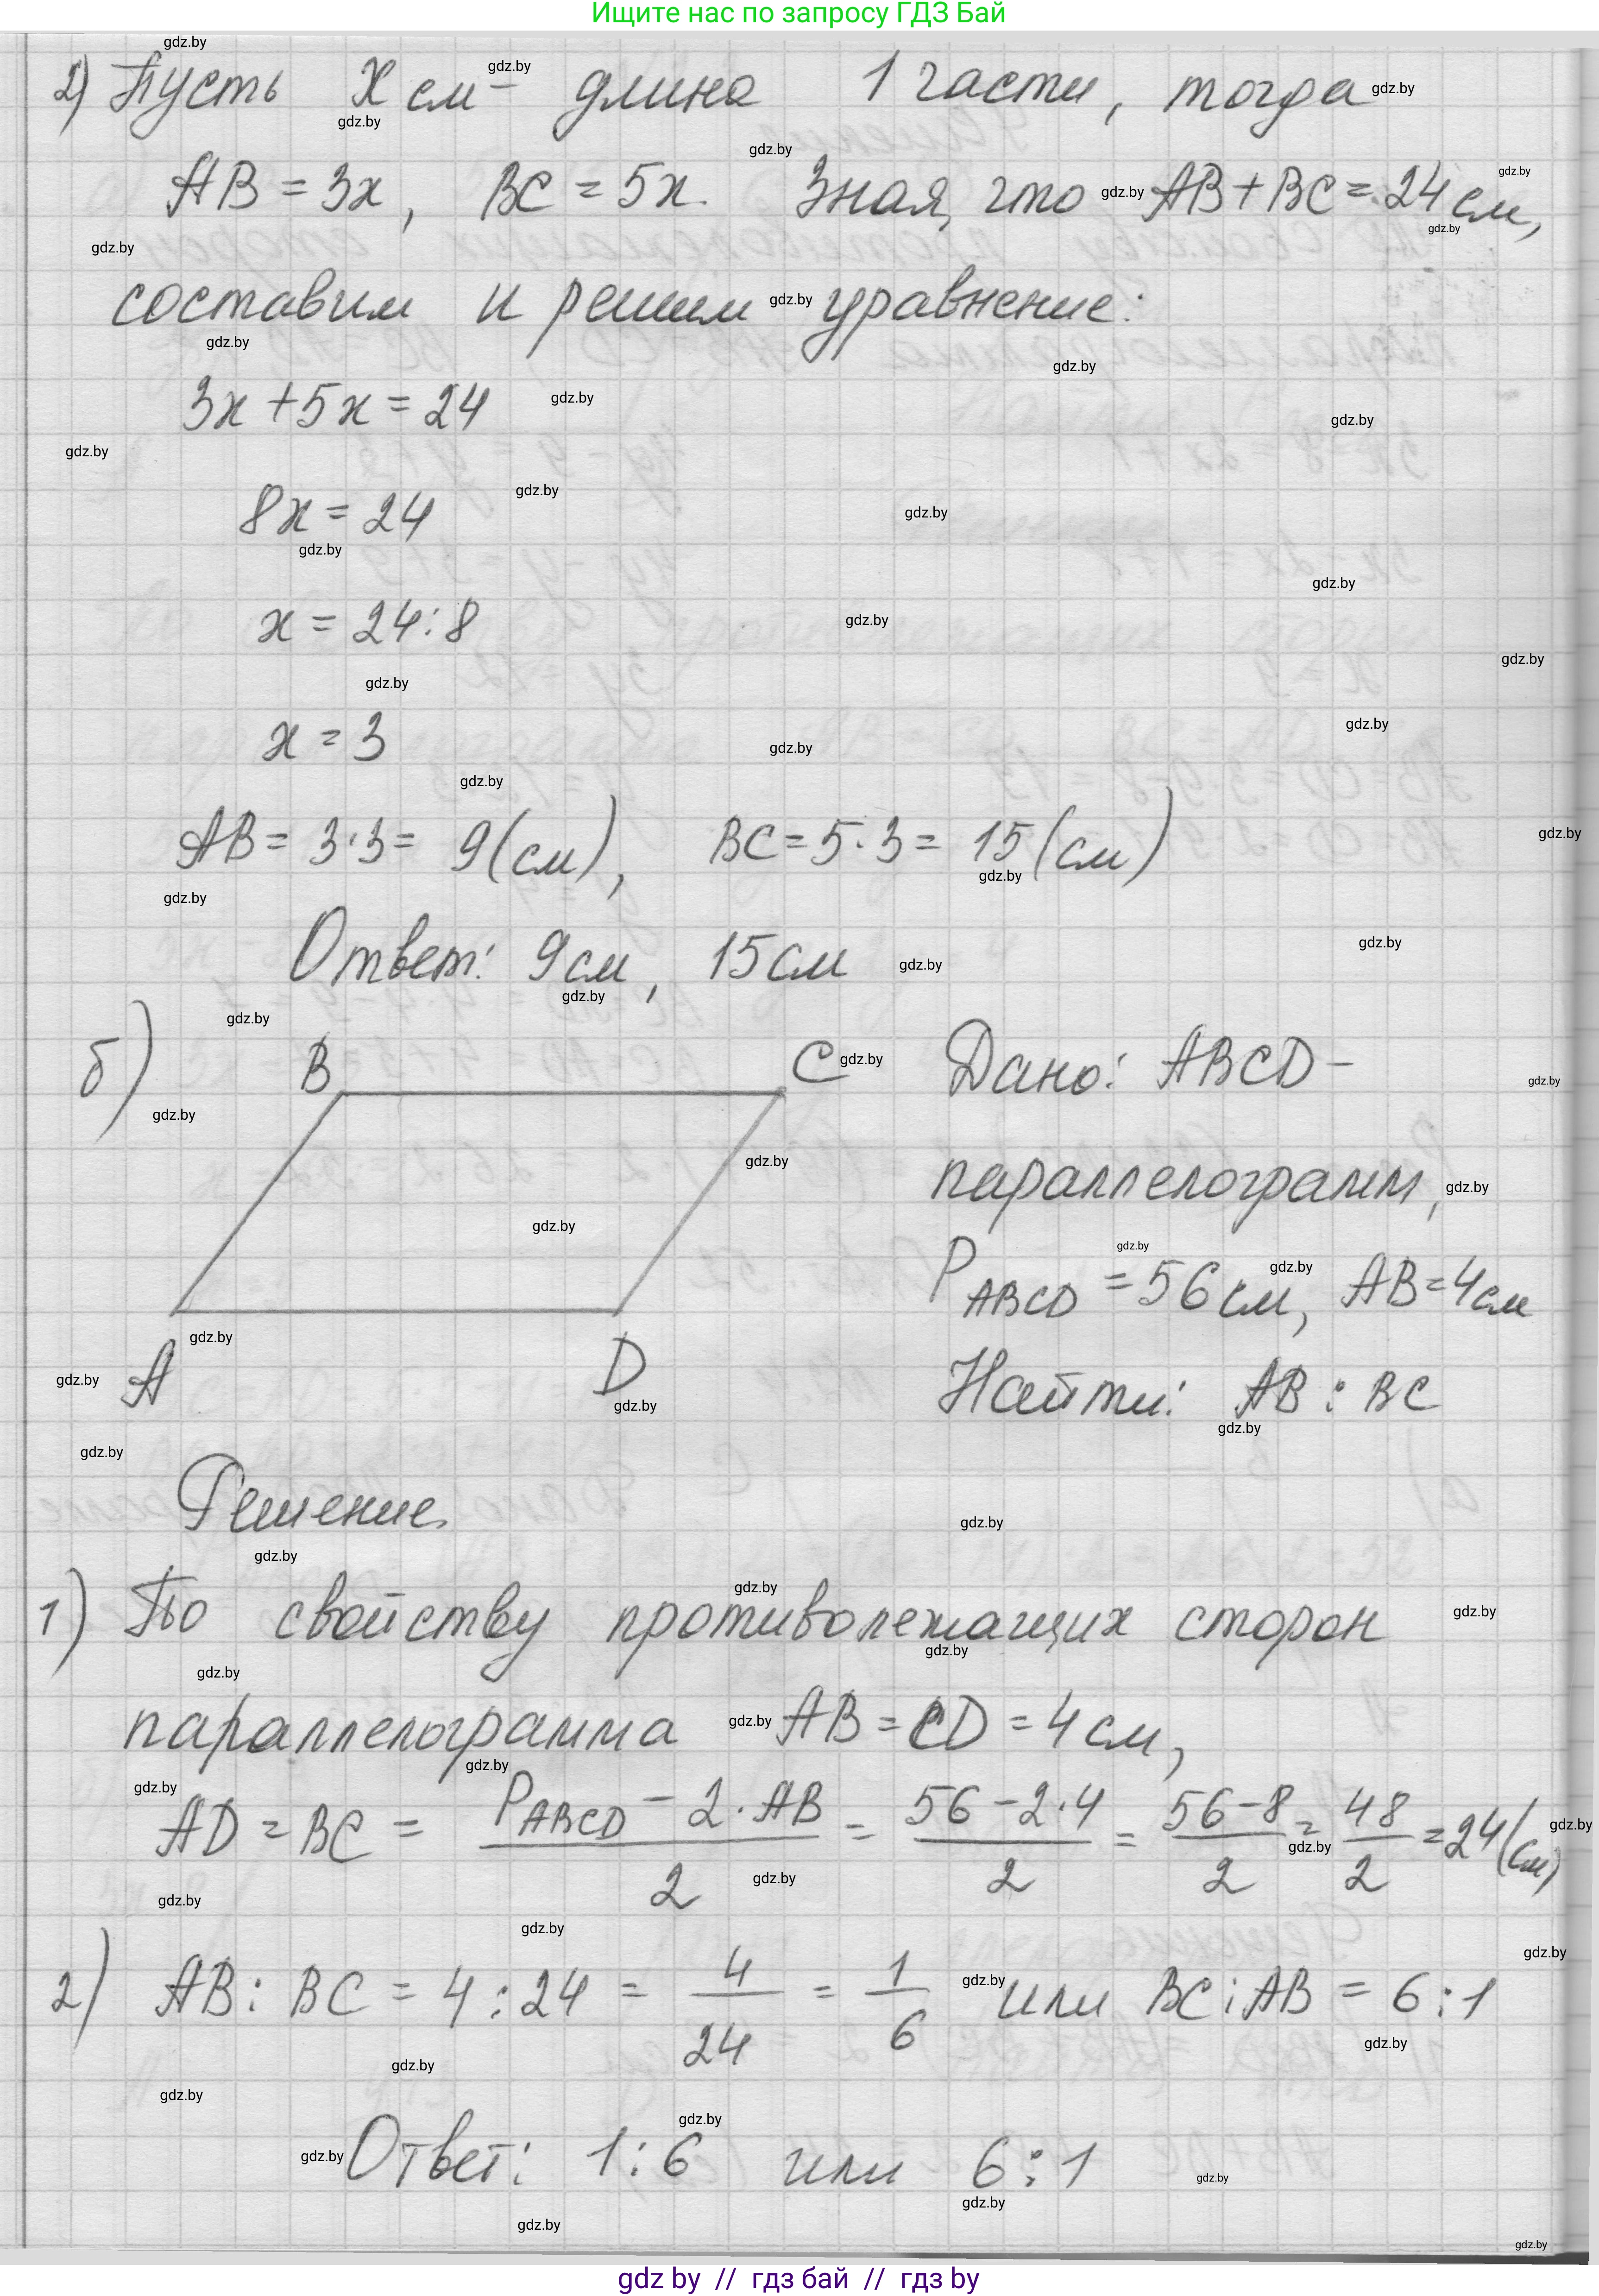 Ищите нас по запросу ГДЗ Бай
2) Пусть x см - длина 1 части, тогда
AB = 3x, BC = 5x. Зная, что AB + BC = 24 см,
составим и решим уравнение:
3x + 5x = 24
8x = 24
x = 24 : 8
x = 3
AB = 3·3 = 9 (см), BC = 5·3 = 15 (см)
Ответ: 9 см, 15 см
б) B C Дано: ABCD -
параллелограмм,
P ABCD = 56 см, AB = 4 см
A D Найти: AB : BC
Решение.
1) По свойству противолежащих сторон
параллелограмма AB = CD = 4 см,
AD = BC = (P ABCD - 2·AB)/2 = (56 - 2·4)/2 = (56 - 8)/2 = 48/2 = 24 (см)
2) AB : BC = 4 : 24 = 4/24 = 1/6 или BC : AB = 6 : 1
Ответ: 1 : 6 или 6 : 1
gdz.by
gdz by // гдз бай // гдз by